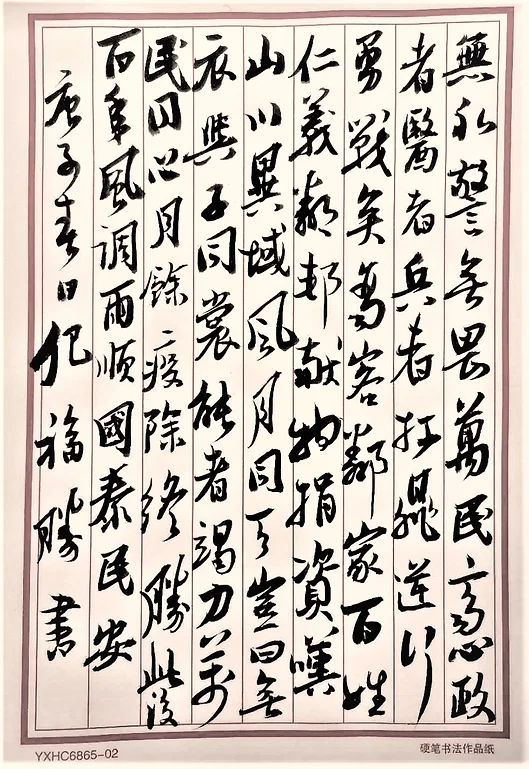 無私警無畏萬民齊心政
者醫者兵者狂飈逆行
勇戰矣客鄰家百姓
仁義鄰邦獻物捐資嘆
山川異域風月同天豈曰無
衣與子同裳能者竭力萬
民同心月餘疫除終勝此後
百年風调雨順國泰民安
庚子春日福勝書
YXHC6865-02
硬笔书法作品纸